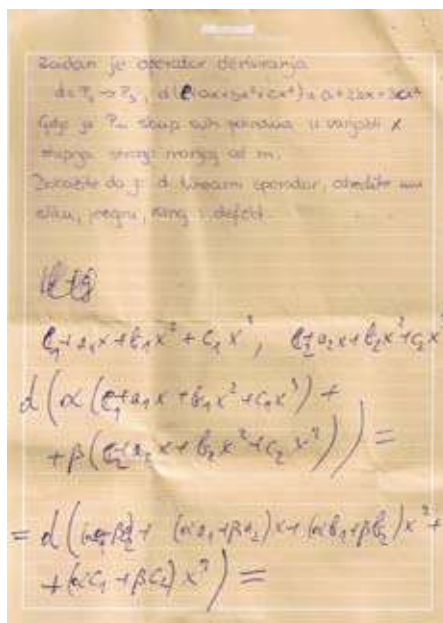 Zadan je operator deriviranja
d: P₄ → P₃, d(e+ax+bx²+cx³) = a+2bx+3cx²
Gdje je Pₘ skup svih polinoma u varijabli x
stupnja strogo manjeg od m.
Dokažite da je d linearni operator, odredite mu
sliku, jezgru, rang i defekt.
e₁+a₁x+b₁x²+c₁x³, e₂+a₂x+b₂x²+c₂x³
d(α(e₁+a₁x+b₁x²+c₁x³)+
+β(e₂+a₂x+b₂x²+c₂x³))=
=d((αe₁+βe₂)+(αa₁+βa₂)x+(αb₁+βb₂)x²+
+(αc₁+βc₂)x³)=